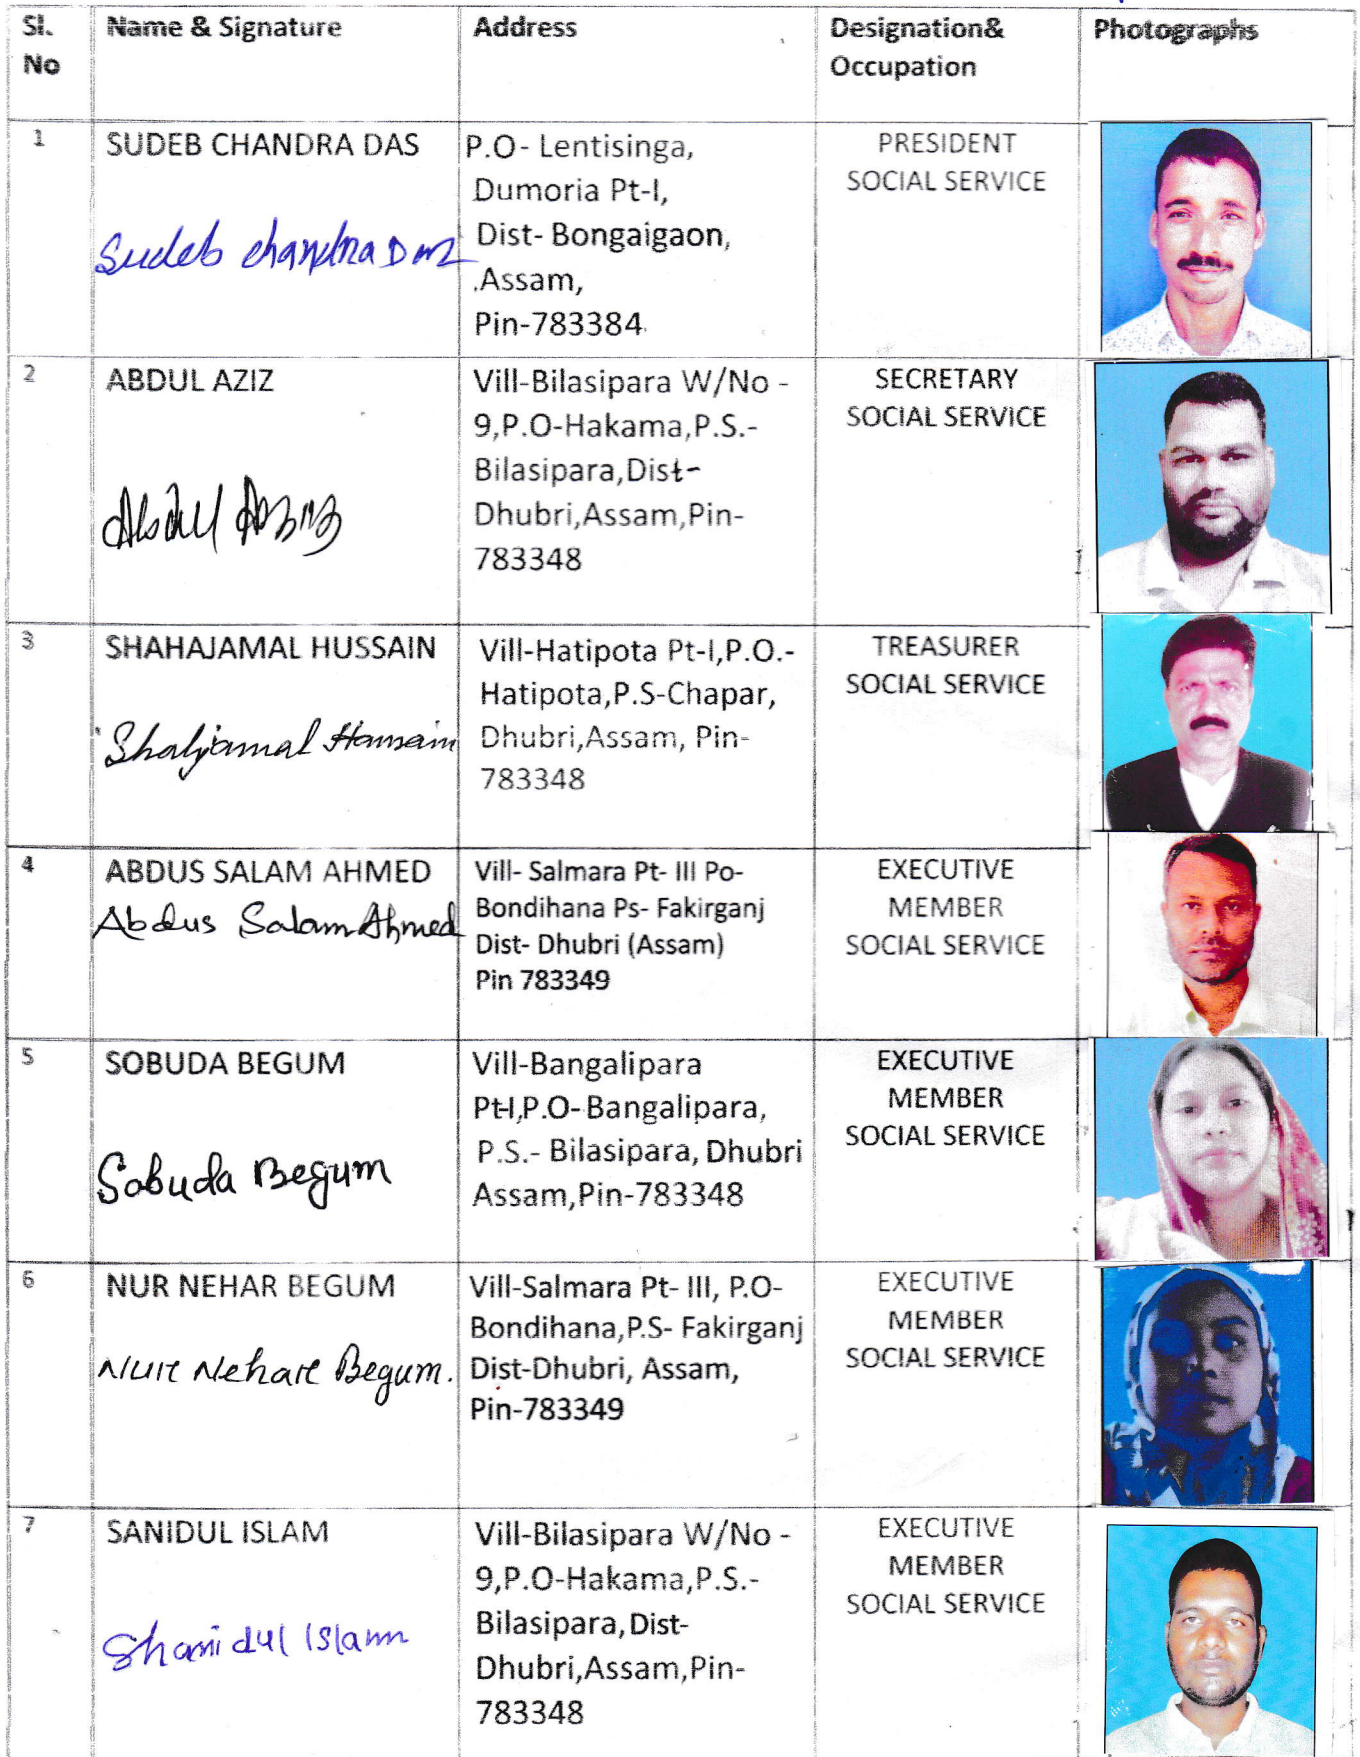 Sl. No
Name & Signature
Address
Designation& Occupation
Photographs
1
SUDEB CHANDRA DAS
Sudeb Chandra Das
P.O- Lentisinga,
Dumoria Pt-I,
Dist- Bongaigaon,
.Assam,
Pin-783384.
PRESIDENT
SOCIAL SERVICE
2
ABDUL AZIZ
Abdul Aziz
Vill-Bilasipara W/No -
9,P.O-Hakama,P.S.-
Bilasipara,Dist-
Dhubri,Assam,Pin-
783348
SECRETARY
SOCIAL SERVICE
3
SHAHAJAMAL HUSSAIN
Shahjamal Hussain
Vill-Hatipota Pt-I,P.O.-
Hatipota,P.S-Chapar,
Dhubri,Assam, Pin-
783348
TREASURER
SOCIAL SERVICE
4
ABDUS SALAM AHMED
Abdus Salam Ahmed
Vill- Salmara Pt- III Po-
Bondihana Ps- Fakirganj
Dist- Dhubri (Assam)
Pin 783349
EXECUTIVE
MEMBER
SOCIAL SERVICE
5
SOBUDA BEGUM
Sobuda Begum
Vill-Bangalipara
Pt-I,P.O- Bangalipara,
P.S.- Bilasipara, Dhubri
Assam,Pin-783348
EXECUTIVE
MEMBER
SOCIAL SERVICE
6
NUR NEHAR BEGUM
Nur Nehar Begum.
Vill-Salmara Pt- III, P.O-
Bondihana,P.S- Fakirganj
Dist-Dhubri, Assam,
Pin-783349
EXECUTIVE
MEMBER
SOCIAL SERVICE
7
SANIDUL ISLAM
Shanidul Islam
Vill-Bilasipara W/No -
9,P.O-Hakama,P.S.-
Bilasipara,Dist-
Dhubri,Assam,Pin-
783348
EXECUTIVE
MEMBER
SOCIAL SERVICE